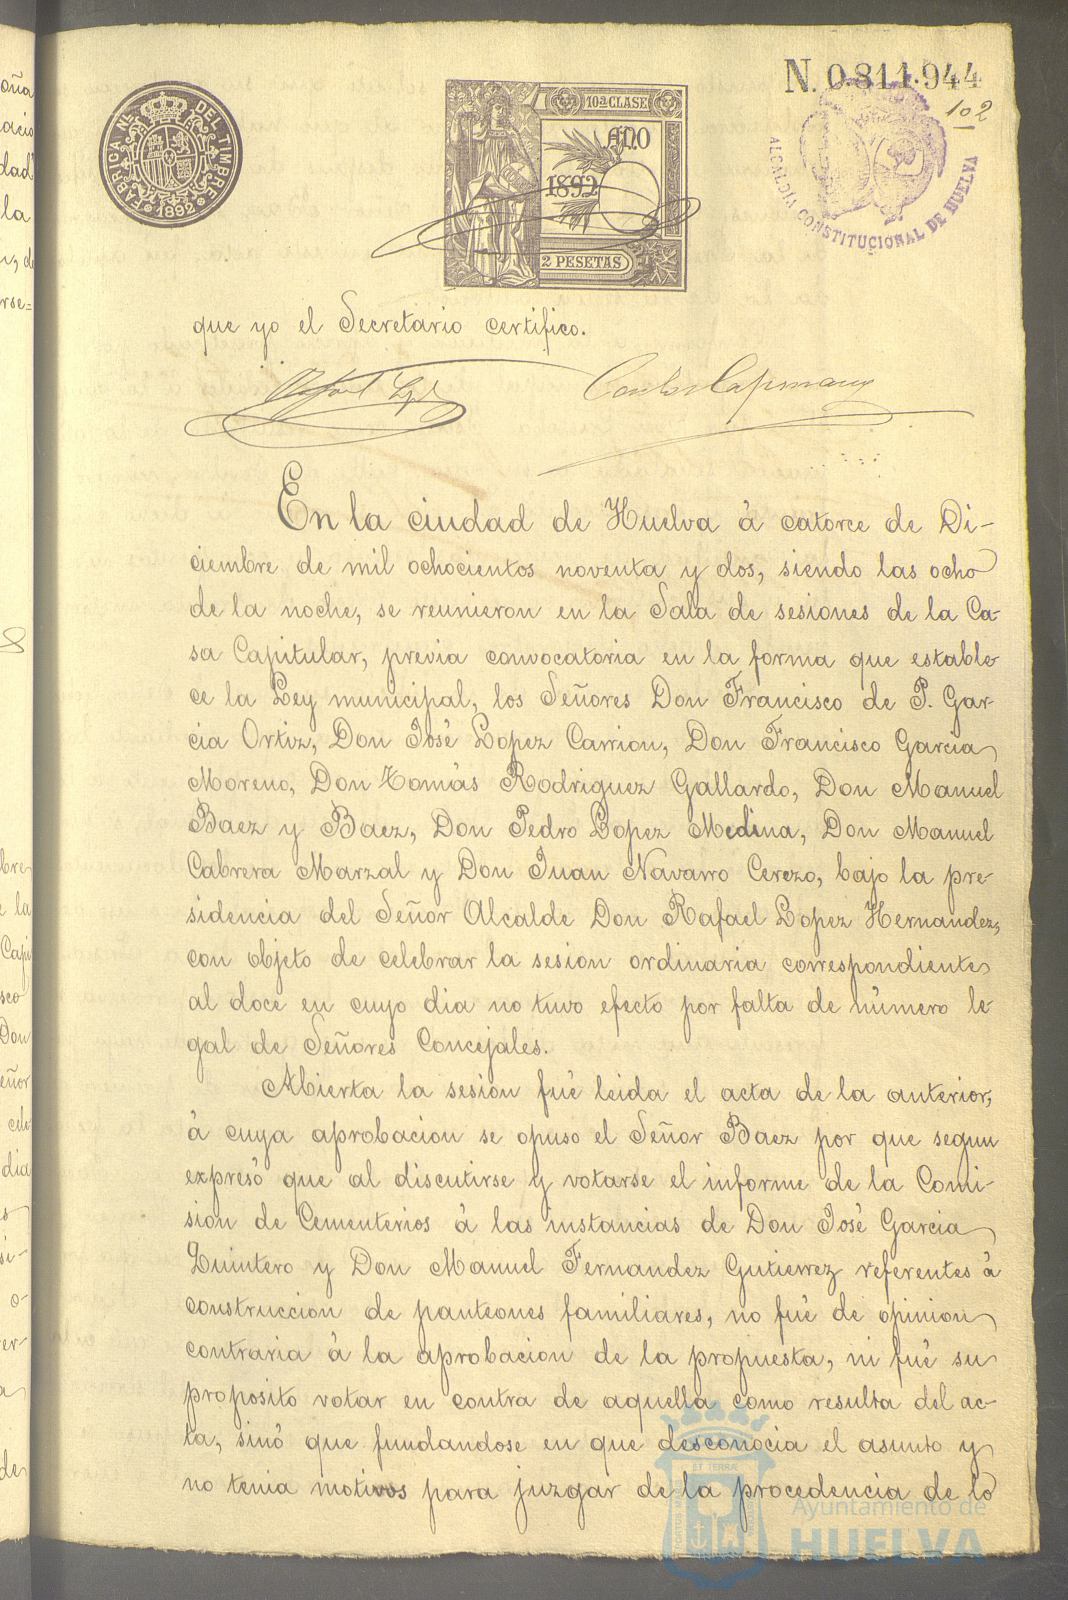 N. 0.811.944
102
FABRICA NAL. DEL TIMBRE
1892
10ª CLASE
AÑO
1892
2 PESETAS
ALCALDIA CONSTITUCIONAL DE HUELVA
que yo el Secretario certifico.
En la ciudad de Huelva á catorce de Di-
ciembre de mil ochocientos noventa y dos, siendo las ocho
de la noche, se reunieron en la Sala de sesiones de la Ca-
sa Capitular, previa convocatoria en la forma que estable-
ce la Ley municipal, los Señores Don Francisco de P. Gar-
cia Ortiz, Don José Lopez Carrion, Don Francisco Garcia
Moreno, Don Tomás Rodriguez Gallardo, Don Manuel
Baez y Baez, Don Pedro Lopez Medina, Don Manuel
Cabrera Marzal y Don Juan Navarro Cerezo, bajo la pre-
sidencia del Señor Alcalde Don Rafael Lopez Hernandez,
con objeto de celebrar la sesion ordinaria correspondiente
al doce en cuyo dia no tuvo efecto por falta de número le-
gal de Señores Concejales.
Abierta la sesion fué leida el acta de la anterior,
á cuya aprobacion se opuso el Señor Baez por que segun
expresó que al discutirse y votarse el informe de la Comi-
sion de Cementerios á las instancias de Don José Garcia
Quintero y Don Manuel Fernandez Gutierrez referentes á
construccion de panteones familiares, no fué de opinion
contraria á la aprobacion de la propuesta, ni fué su
proposito votar en contra de aquella como resulta del ac-
ta, sinó que fundandose en que desconocia el asunto y
no tenia motivos para juzgar de la procedencia de lo
Ayuntamiento de
HUELVA